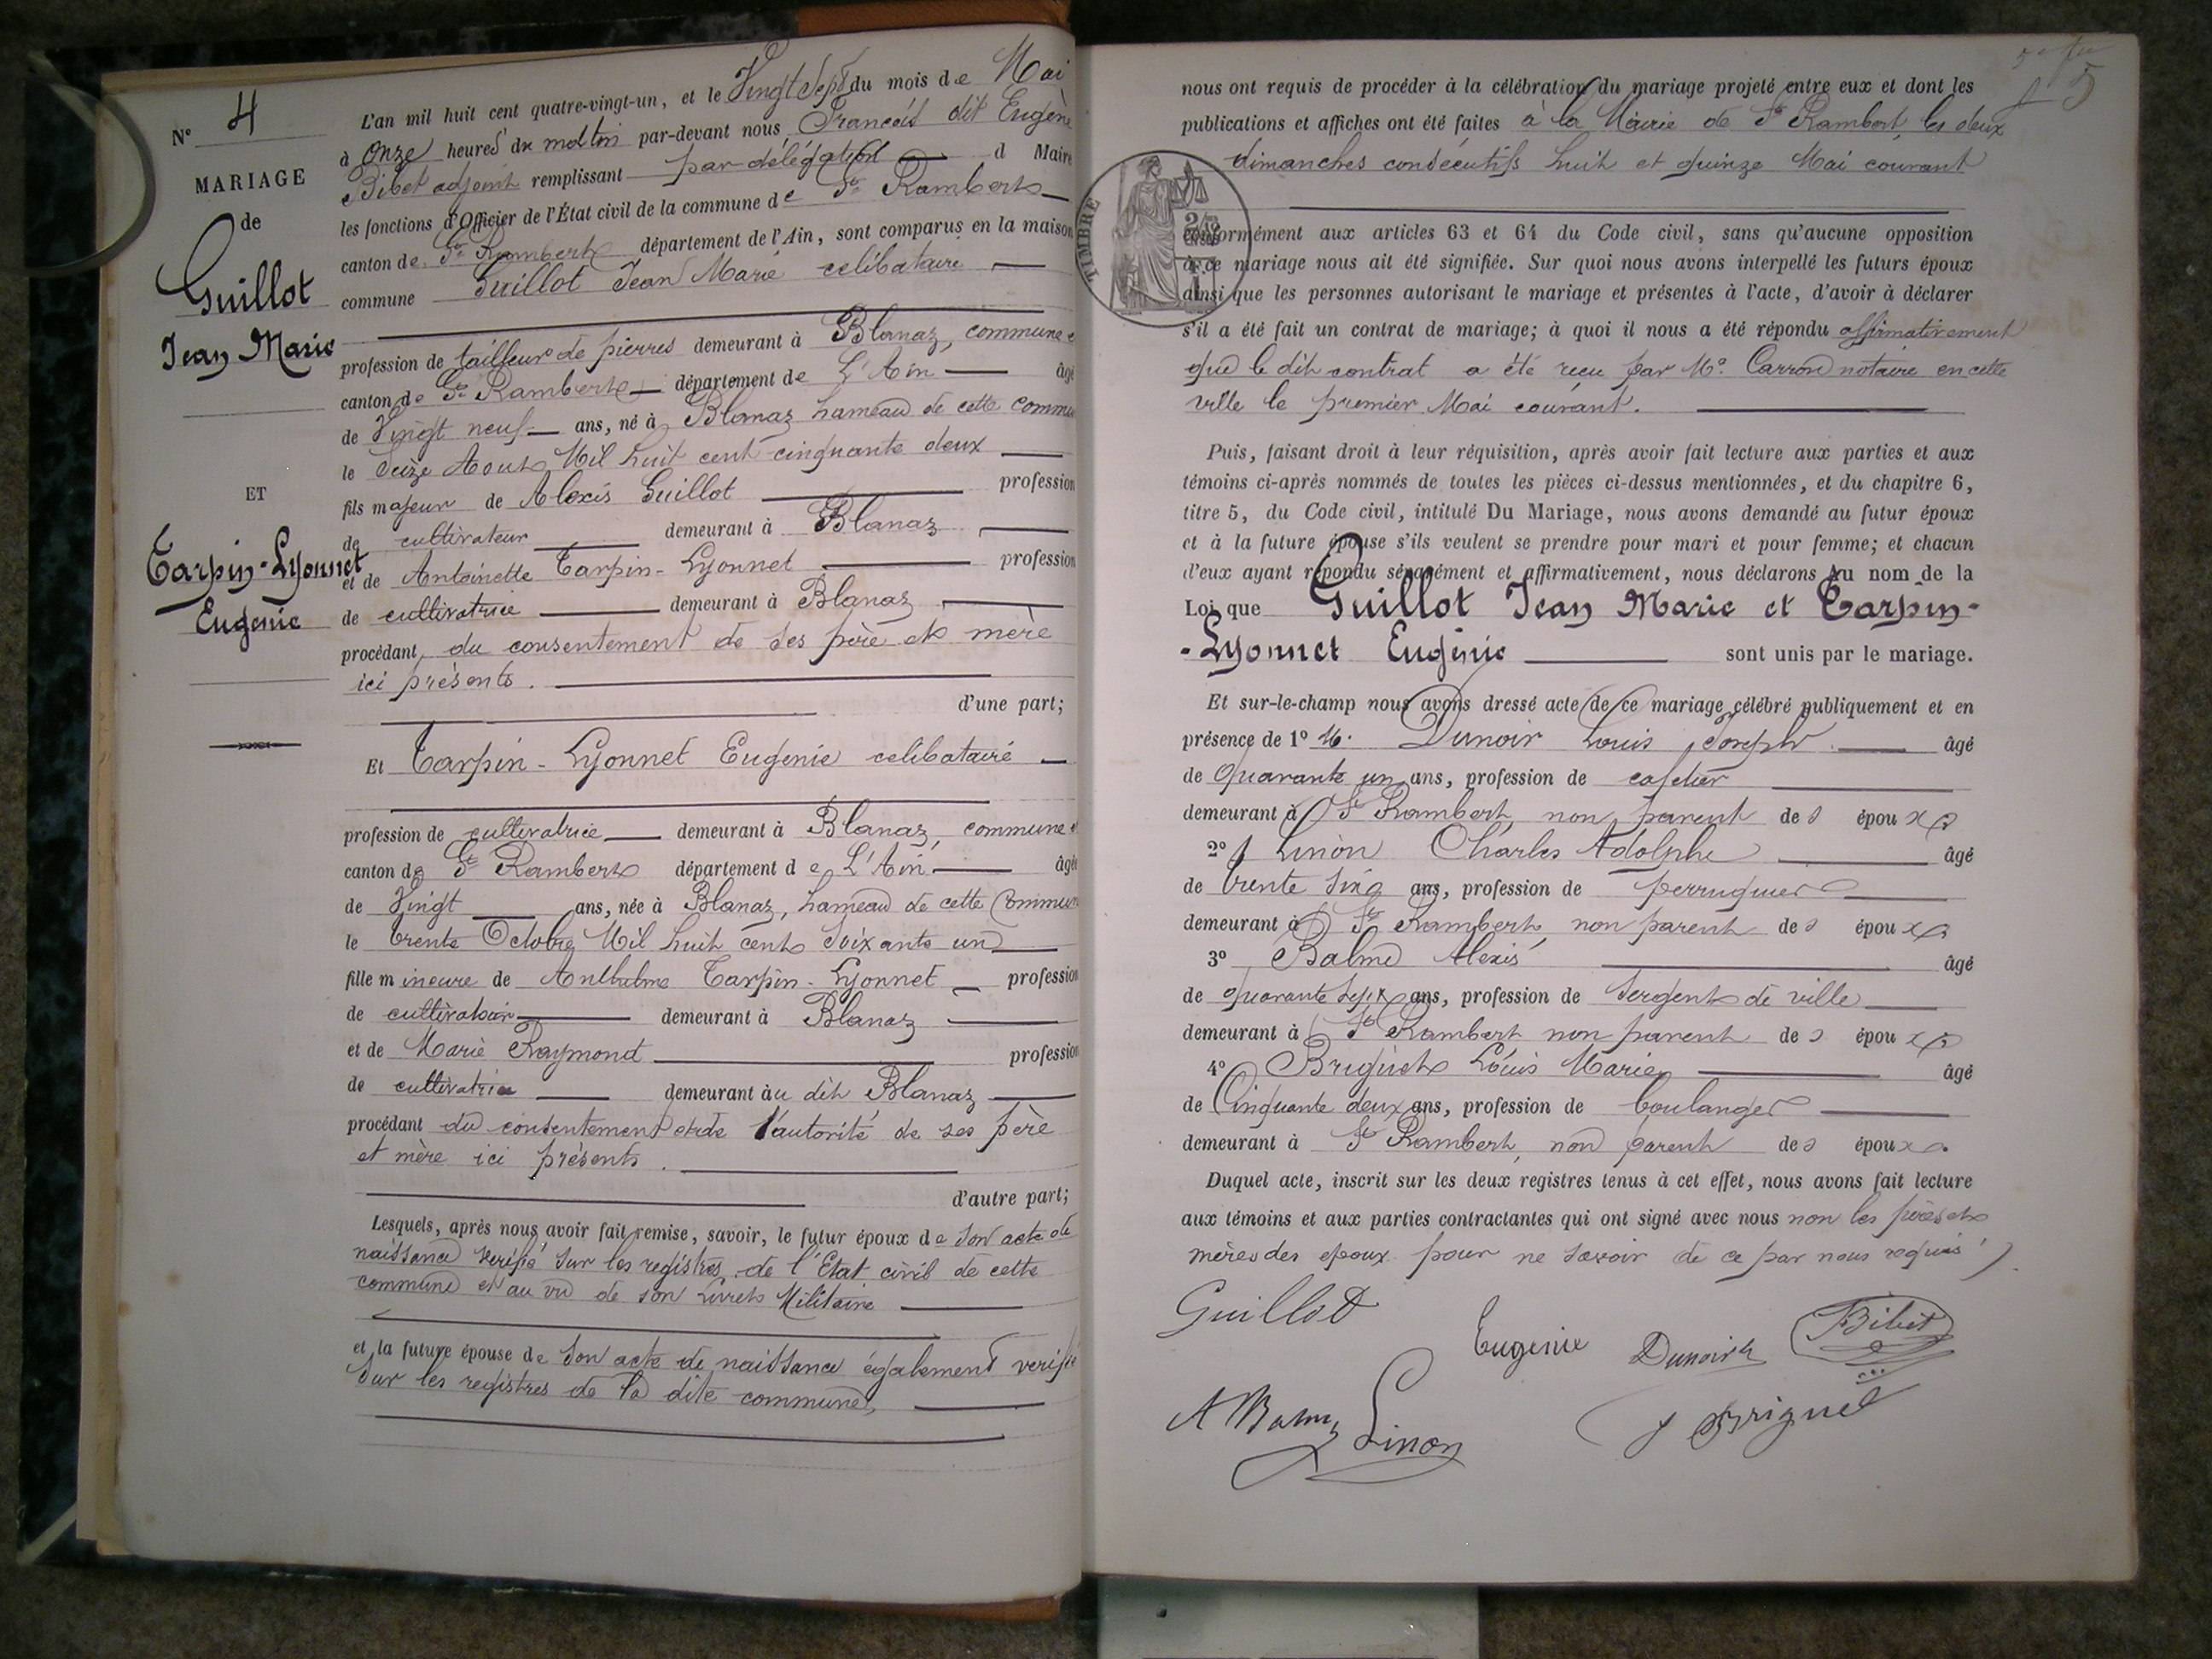 N° 4
MARIAGE
de
Guillot
Jean Marie
ET
Tarpin-Lyonnet
Eugénie
L'an mil huit cent quatre-vingt-un, et le Vingt Sept du mois de Mai
à Onze heures du matin par-devant nous François dit Eugène
Bibet adjoint remplissant par délégation d Maire
les fonctions d'Officier de l'État civil de la commune de St Rambert
canton de St Rambert département de l'Ain, sont comparus en la maison
commune Guillot Jean Marie celibataire
profession de tailleur de pierres demeurant à Blanaz, commune et
canton de St Rambert département de L'Ain âgé
de Vingt neuf ans, né à Blanaz hameau de cette commune
le Seize Aout Mil huit cent cinquante deux
fils majeur de Alexis Guillot profession
de cultivateur demeurant à Blanaz
et de Antoinette Tarpin-Lyonnet profession
de cultivatrice demeurant à Blanaz
procédant, du consentement de ses père et mère
ici présents.
d'une part;
Et Tarpin-Lyonnet Eugenie celibataire
profession de cultivatrice demeurant à Blanaz, commune et
canton de St Rambert département de L'Ain âgée
de Vingt ans, née à Blanaz, hameau de cette Commune
le trente Octobre Mil huit cent soixante un
fille mineure de Anthelme Tarpin-Lyonnet profession
de cultivateur demeurant à Blanaz
et de Marie Raymond profession
de cultivatrice demeurant au dit Blanaz
procédant du consentement et de l'autorité de ses père
et mère ici présents.
d'autre part;
Lesquels, après nous avoir fait remise, savoir, le futur époux de son acte de
naissance verifié sur les registres de l'Etat civil de cette
commune et au vu de son Livret Militaire
et la future épouse de son acte de naissance également verifié
sur les registres de la dite commune,
5
nous ont requis de procéder à la célébration du mariage projeté entre eux et dont les
publications et affiches ont été faites à la Mairie de St Rambert, les deux
dimanches consécutifs huit et quinze Mai courant
TIMBRE
conformément aux articles 63 et 64 du Code civil, sans qu'aucune opposition
à ce mariage nous ait été signifiée. Sur quoi nous avons interpellé les futurs époux
ainsi que les personnes autorisant le mariage et présentes à l'acte, d'avoir à déclarer
s'il a été fait un contrat de mariage; à quoi il nous a été répondu affirmativement
que le dit contrat a été reçu par Me Carron notaire en cette
ville le premier Mai courant.
Puis, faisant droit à leur réquisition, après avoir fait lecture aux parties et aux
témoins ci-après nommés de toutes les pièces ci-dessus mentionnées, et du chapitre 6,
titre 5, du Code civil, intitulé Du Mariage, nous avons demandé au futur époux
et à la future épouse s'ils veulent se prendre pour mari et pour femme; et chacun
d'eux ayant répondu séparément et affirmativement, nous déclarons au nom de la
Loi que Guillot Jean Marie et Tarpin-
-Lyonnet Eugénie sont unis par le mariage.
Et sur-le-champ nous avons dressé acte de ce mariage célébré publiquement et en
présence de 1° M. Dunoir Louis Joseph âgé
de Quarante un ans, profession de cafetier
demeurant à St Rambert, non parent des époux
2° Linon Charles Adolphe âgé
de trente cinq ans, profession de perruquier
demeurant à St Rambert, non parent des époux
3° Balme Alexis âgé
de quarante sept ans, profession de Sergent de ville
demeurant à St Rambert non parent des époux
4° Briguet Louis Marie âgé
de Cinquante deux ans, profession de boulanger
demeurant à St Rambert, non parent des époux
Duquel acte, inscrit sur les deux registres tenus à cet effet, nous avons fait lecture
aux témoins et aux parties contractantes qui ont signé avec nous non les pères et
mères des epoux pour ne savoir de ce par nous requis
Guillot
Eugenie Dunoir Bibet
A Balme Linon Briguet